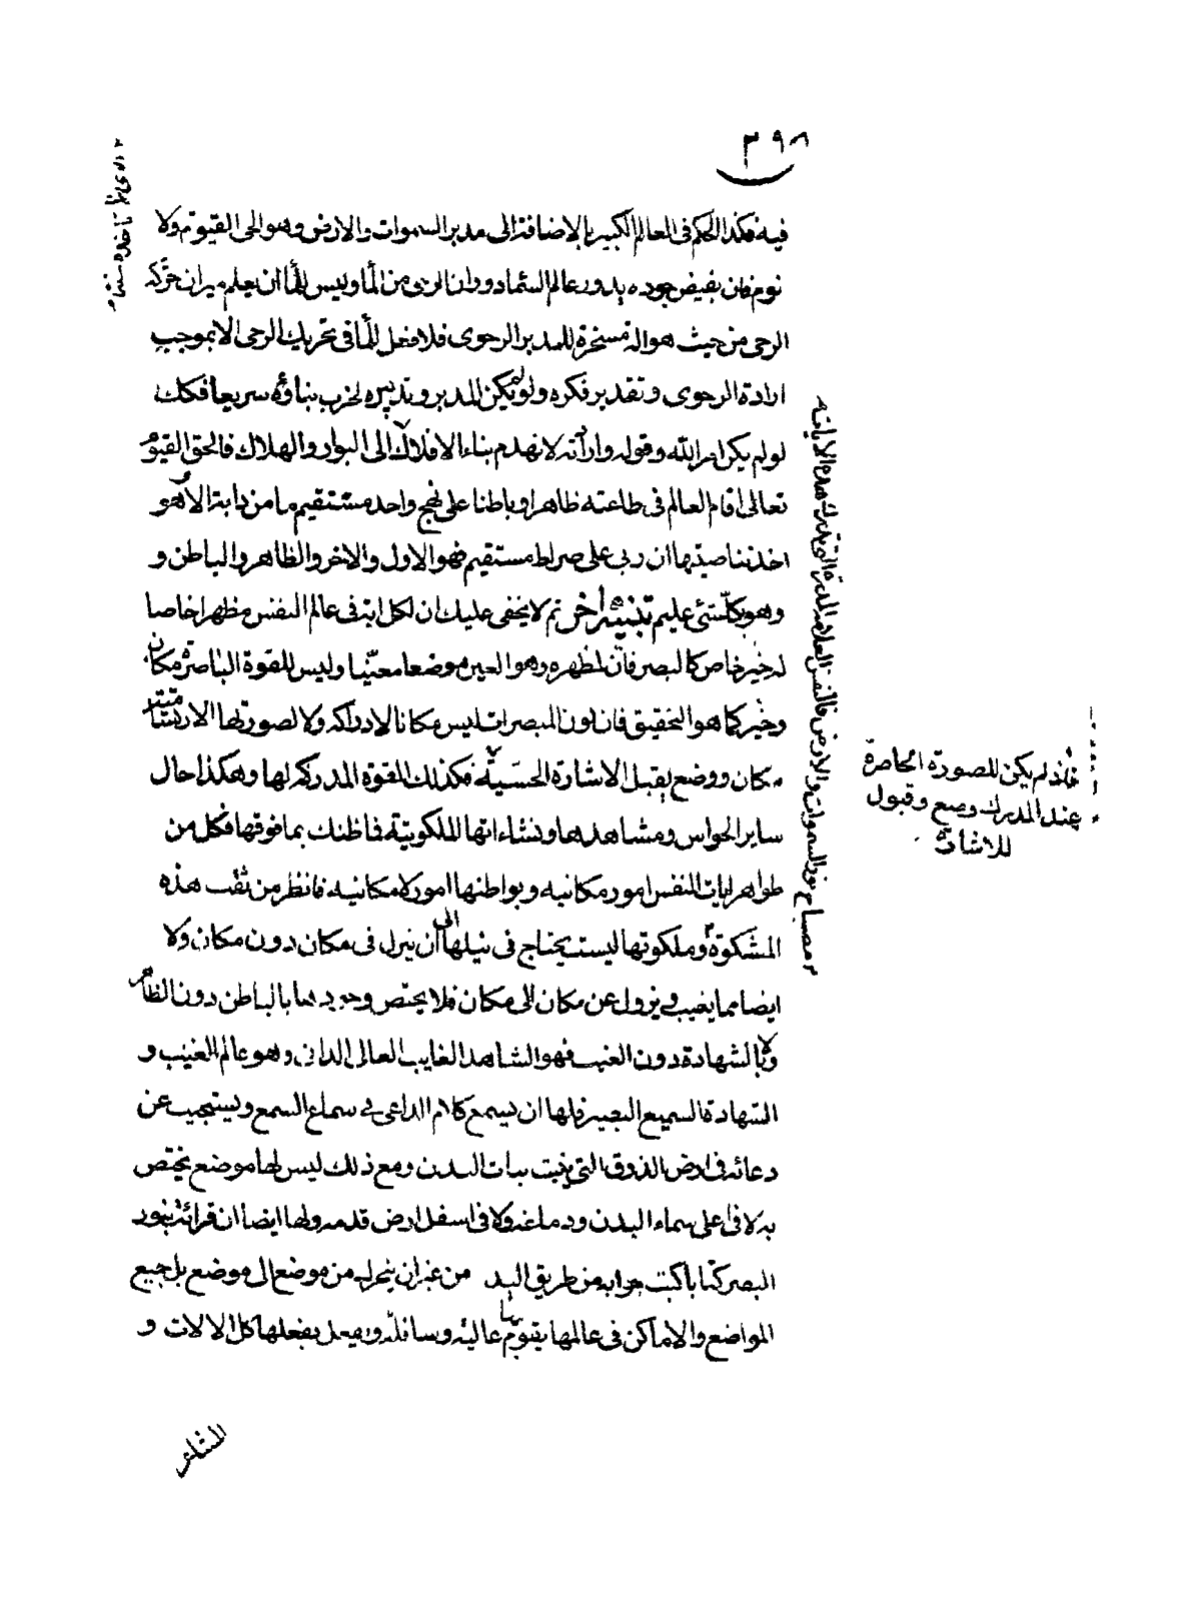 ٣٩٨
فيه فكذا الحكم فى العالم الكبير بالاضافة الى مدبر السموات والارض وهو الحى القيوم ولا
نوم فان بفيض جوده يدور عالم السماء دوران الرحى من الماء وليس للماء ان يعلم ميران حركة
الرحى من حيث هو الة مسخرة للمدبر الرحوى فلا فعل للماء فى تحريك الرحى الا بموجب
ارادة الرحوى وتقدير فكره ولو لم يكن المدبر وتدبيره لخرب بناؤه سريعا فكك
لو لم يكن امر الله وقوله وارادته لانهدم بناء الافلاك الى البوار والهلاك فالحق القيوم
تعالى اقام العالم فى طاعته ظاهرا وباطنا على نهج واحد مستقيم ما من دابة الا هو
اخذ بناصيتها ان ربى على صراط مستقيم فهو الاول والاخر والظاهر والباطن و
وهو بكل شئ عليم تنبيه اخر ثم لا يخفى عليك ان لكل اية فى عالم النفس مظهرا خاصا
له حيز خاص كالبصر فان لمظهره وهو العين موضعا معينا وليس للقوة الباصرة مكان
وحيز كما هو التحقيق فان لون المبصرات ليس مكانا لادراكه ولا لصورتها الارتسامية
مكان ووضع يقبل الاشارة الحسية فكذلك القوة المدركة لها وهكذا حال
ساير الحواس ومشاهدها ونشاءاتها الملكوتية فما ظنك بما فوقها فكل من
ظواهر ايات النفس امور مكانيه وبواطنها امور لا مكانيه فانظر من ثقب هذه
المشكوة وملكوتها ليست يحتاج فى نيلها الى ان ينزل فى مكان دون مكان ولا
ايضا مما يغيب ويزول عن مكان الى مكان فلا يختص وجودها بالباطن دون الظاهر
ولا بالشهادة دون الغيب فهو الشاهد الغايب العالى الدانى وهو عالم الغيب و
الشهادة السميع البصير فلها ان يسمع كلام الداعى فى سماع السمع ويستجيب عن
دعائه فى ارض الذوق التى ينبت نبات البدن ومع ذلك ليس لها موضع يختص
به لا فى اعلى سماء البدن ودماغه ولا فى اسفل ارض قدمه ولها ايضا ان قرائة بنور
البصر كتابا كتبت جوابه من طريق اليد من غير ان يتحرك من موضع الى موضع بل جميع
المواضع والاماكن فى عالمها يتقوم بها عالية وسافلة ويفعل بفعلها كل الالات و
مصباح نور السموات والارض فالنفس العلامة الدراكة التى تدرك هذه الايات
فاذ لم يكن للصورة الحاضرة
عند المدرك وضع وقبول
للاشارة
المشاعر